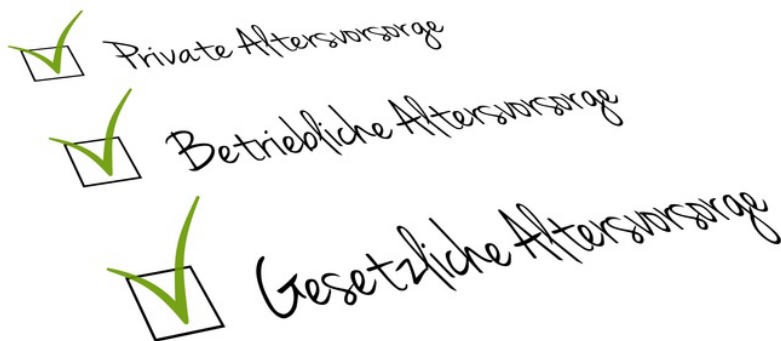 Private Altersvorsorge
Betriebliche Altersvorsorge
Gesetzliche Altersvorsorge